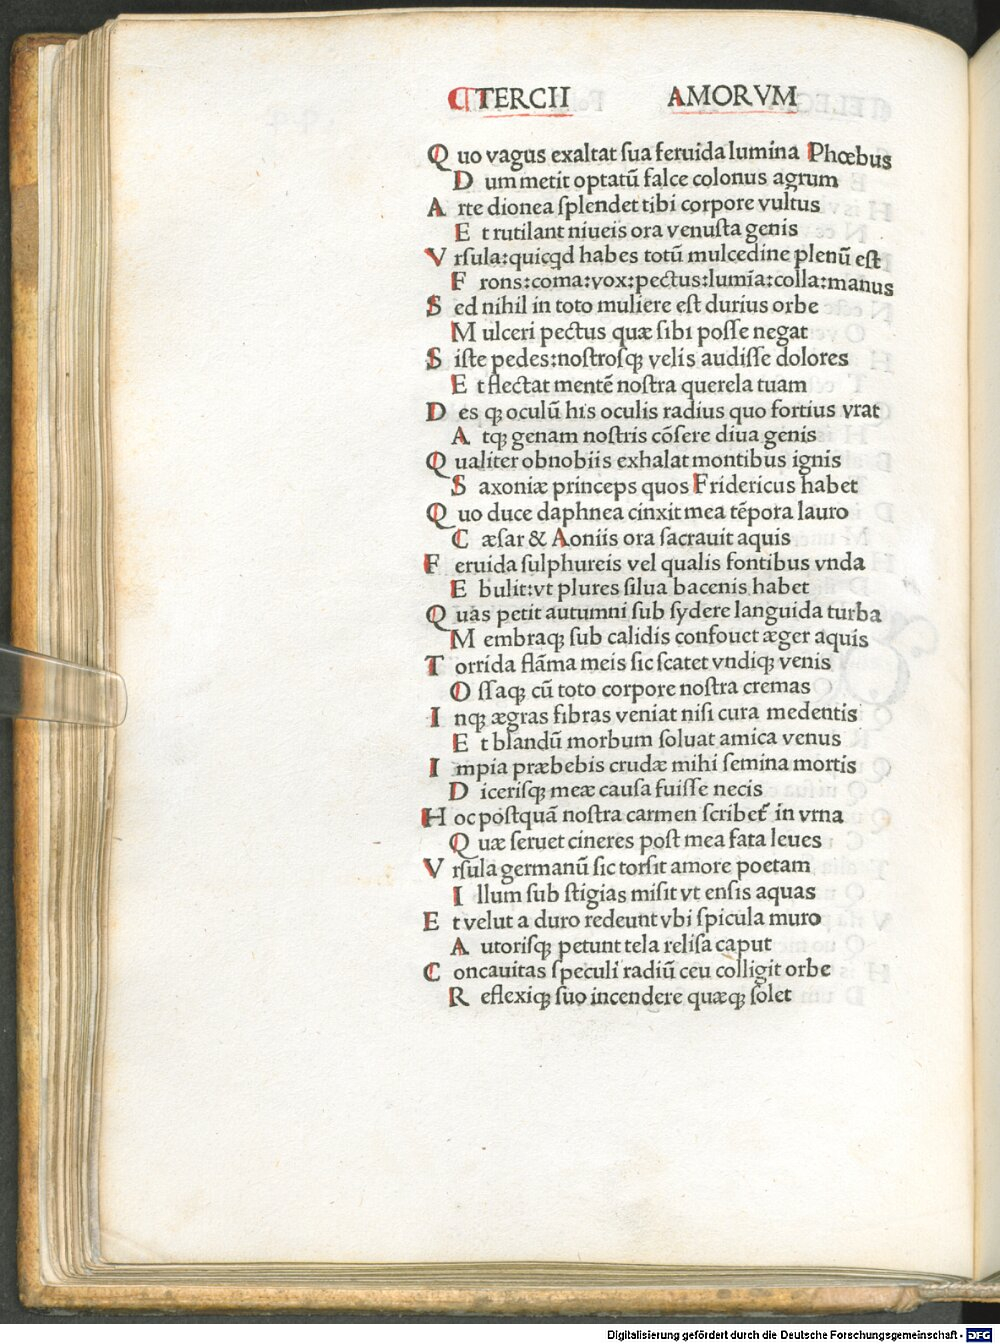 TERCII AMORVM
Quo vagus exaltat ſua feruida lumina Phœbus
Dum metit optatū falce colonus agrum
Arte dionea ſplendet tibi corpore vultus
Et rutilant niueis ora venuſta genis
Vrſula:quicqd habes totū mulcedine plenū eſt
Frons:coma:vox:pectus:lumīa:colla:manus
Sed nihil in toto muliere eſt durius orbe
Mulceri pectus quæ ſibi poſſe negat
Siſte pedes:noſtroſqꝫ velis audiſſe dolores
Et flectat mentē noſtra querela tuam
Des qꝫ oculū his oculis radius quo fortius vrat
Atqꝫ genam noſtris cōſere diua genis
Qualiter obnobiis exhalat montibus ignis
Saxoniæ princeps quos Fridericus habet
Quo duce daphnea cinxit mea tēpora lauro
Cæſar & Aoniis ora ſacrauit aquis
Feruida ſulphureis vel qualis fontibus vnda
Ebulit:vt plures ſilua bacenis habet
Quas petit autumni ſub ſydere languida turba
Membraqꝫ ſub calidis confouet æger aquis
Torrida flāma meis ſic ſcatet vndiqꝫ venis
Oſſaqꝫ cū toto corpore noſtra cremas
Inqꝫ ægras fibras veniat niſi cura medentis
Et blandū morbum ſoluat amica venus
Impia præbebis crudæ mihi ſemina mortis
Diceriſqꝫ meæ cauſa fuiſſe necis
Hoc poſtquā noſtra carmen ſcribet᷑ in vrna
Quæ ſeruet cineres poſt mea fata leues
Vrſula germanū ſic torſit amore poetam
Illum ſub ſtigias miſit vt enſis aquas
Et velut a duro redeunt vbi ſpicula muro
Autoriſqꝫ petunt tela reliſa caput
Concauitas ſpeculi radiū ceu colligit orbe
Reflexiqꝫ ſuo incendere quæqꝫ ſolet
Digitalisierung gefördert durch die Deutsche Forschungsgemeinschaft - DFG